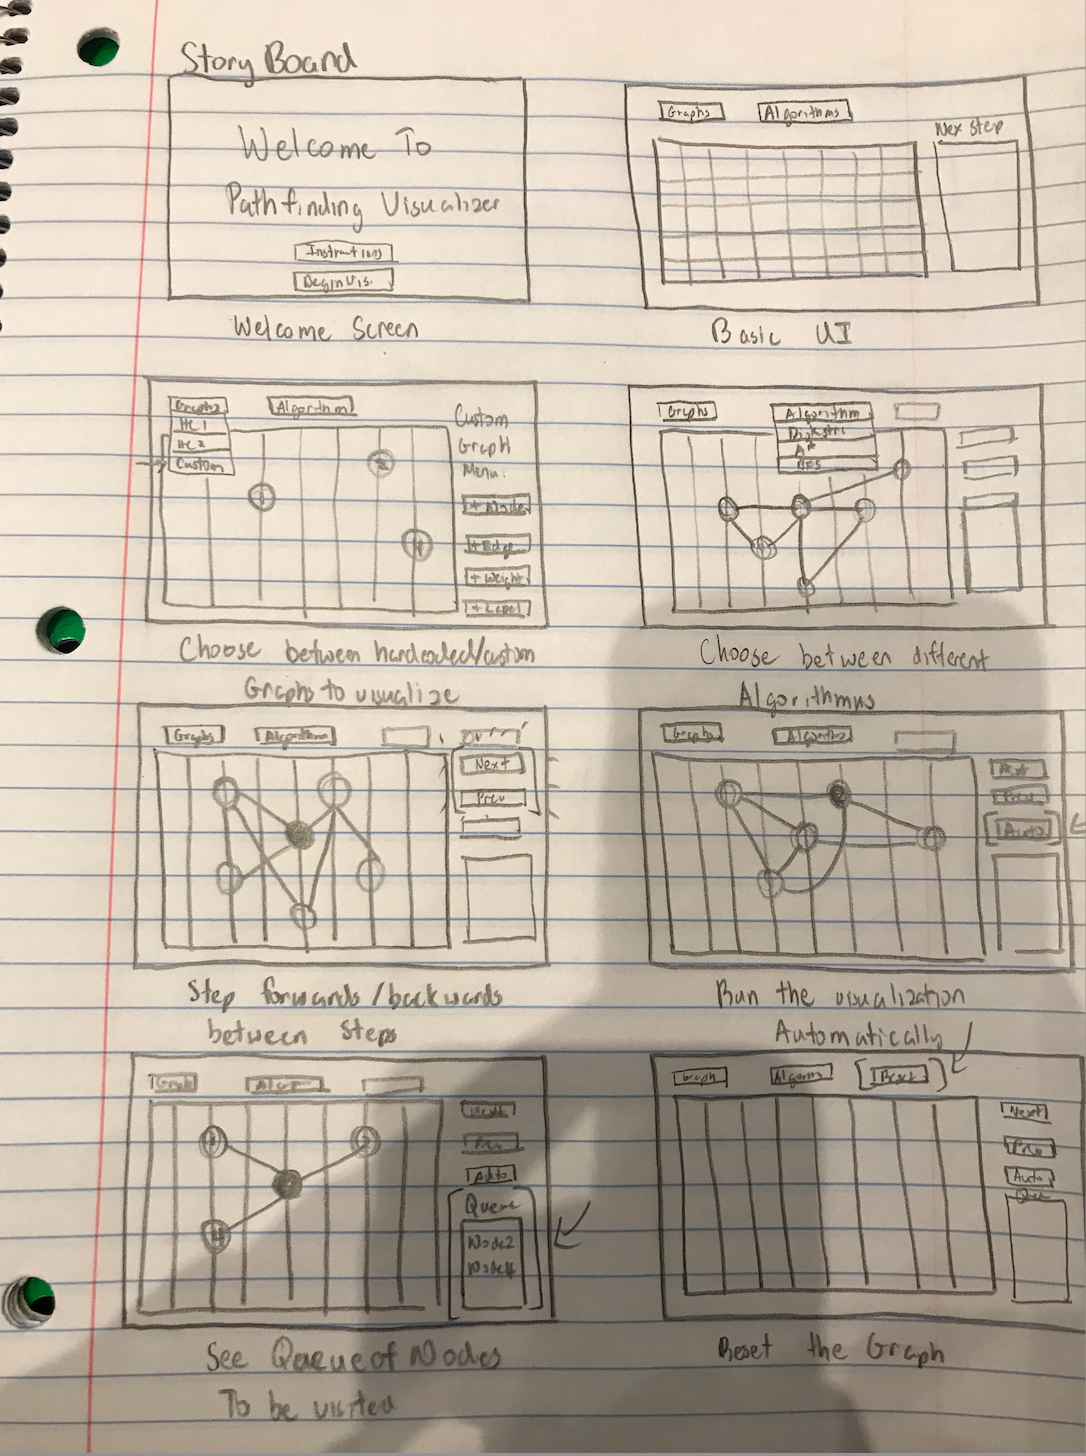 Story Board
Welcome To
Pathfinding Visualizer
Instructions
Begin Vis.
Welcome Screen
Graphs
Algorithms
Nex Step
Basic UI
Graphs
HC 1
HC 2
Custom
Algorithm
Custom
Graph
Menu:
+ Node
+ Edge
+ Weight
+ Label
Choose between hardcoded/custom
Graphs to visualize
Graphs
Algorithm
A*
BFS
Choose between different
Algorithmns
Graphs
Algorithm
Next
Prev
Step forwards/backwards
between Steps
Graphs
Next
Auto
Run the visualization
Automatically
Graph
Next
Prev
Auto
Queue
Node2
Node4
See Queue of Nodes
To be visited
Graph
Reset
Next
Prev
Auto
Reset the Graph